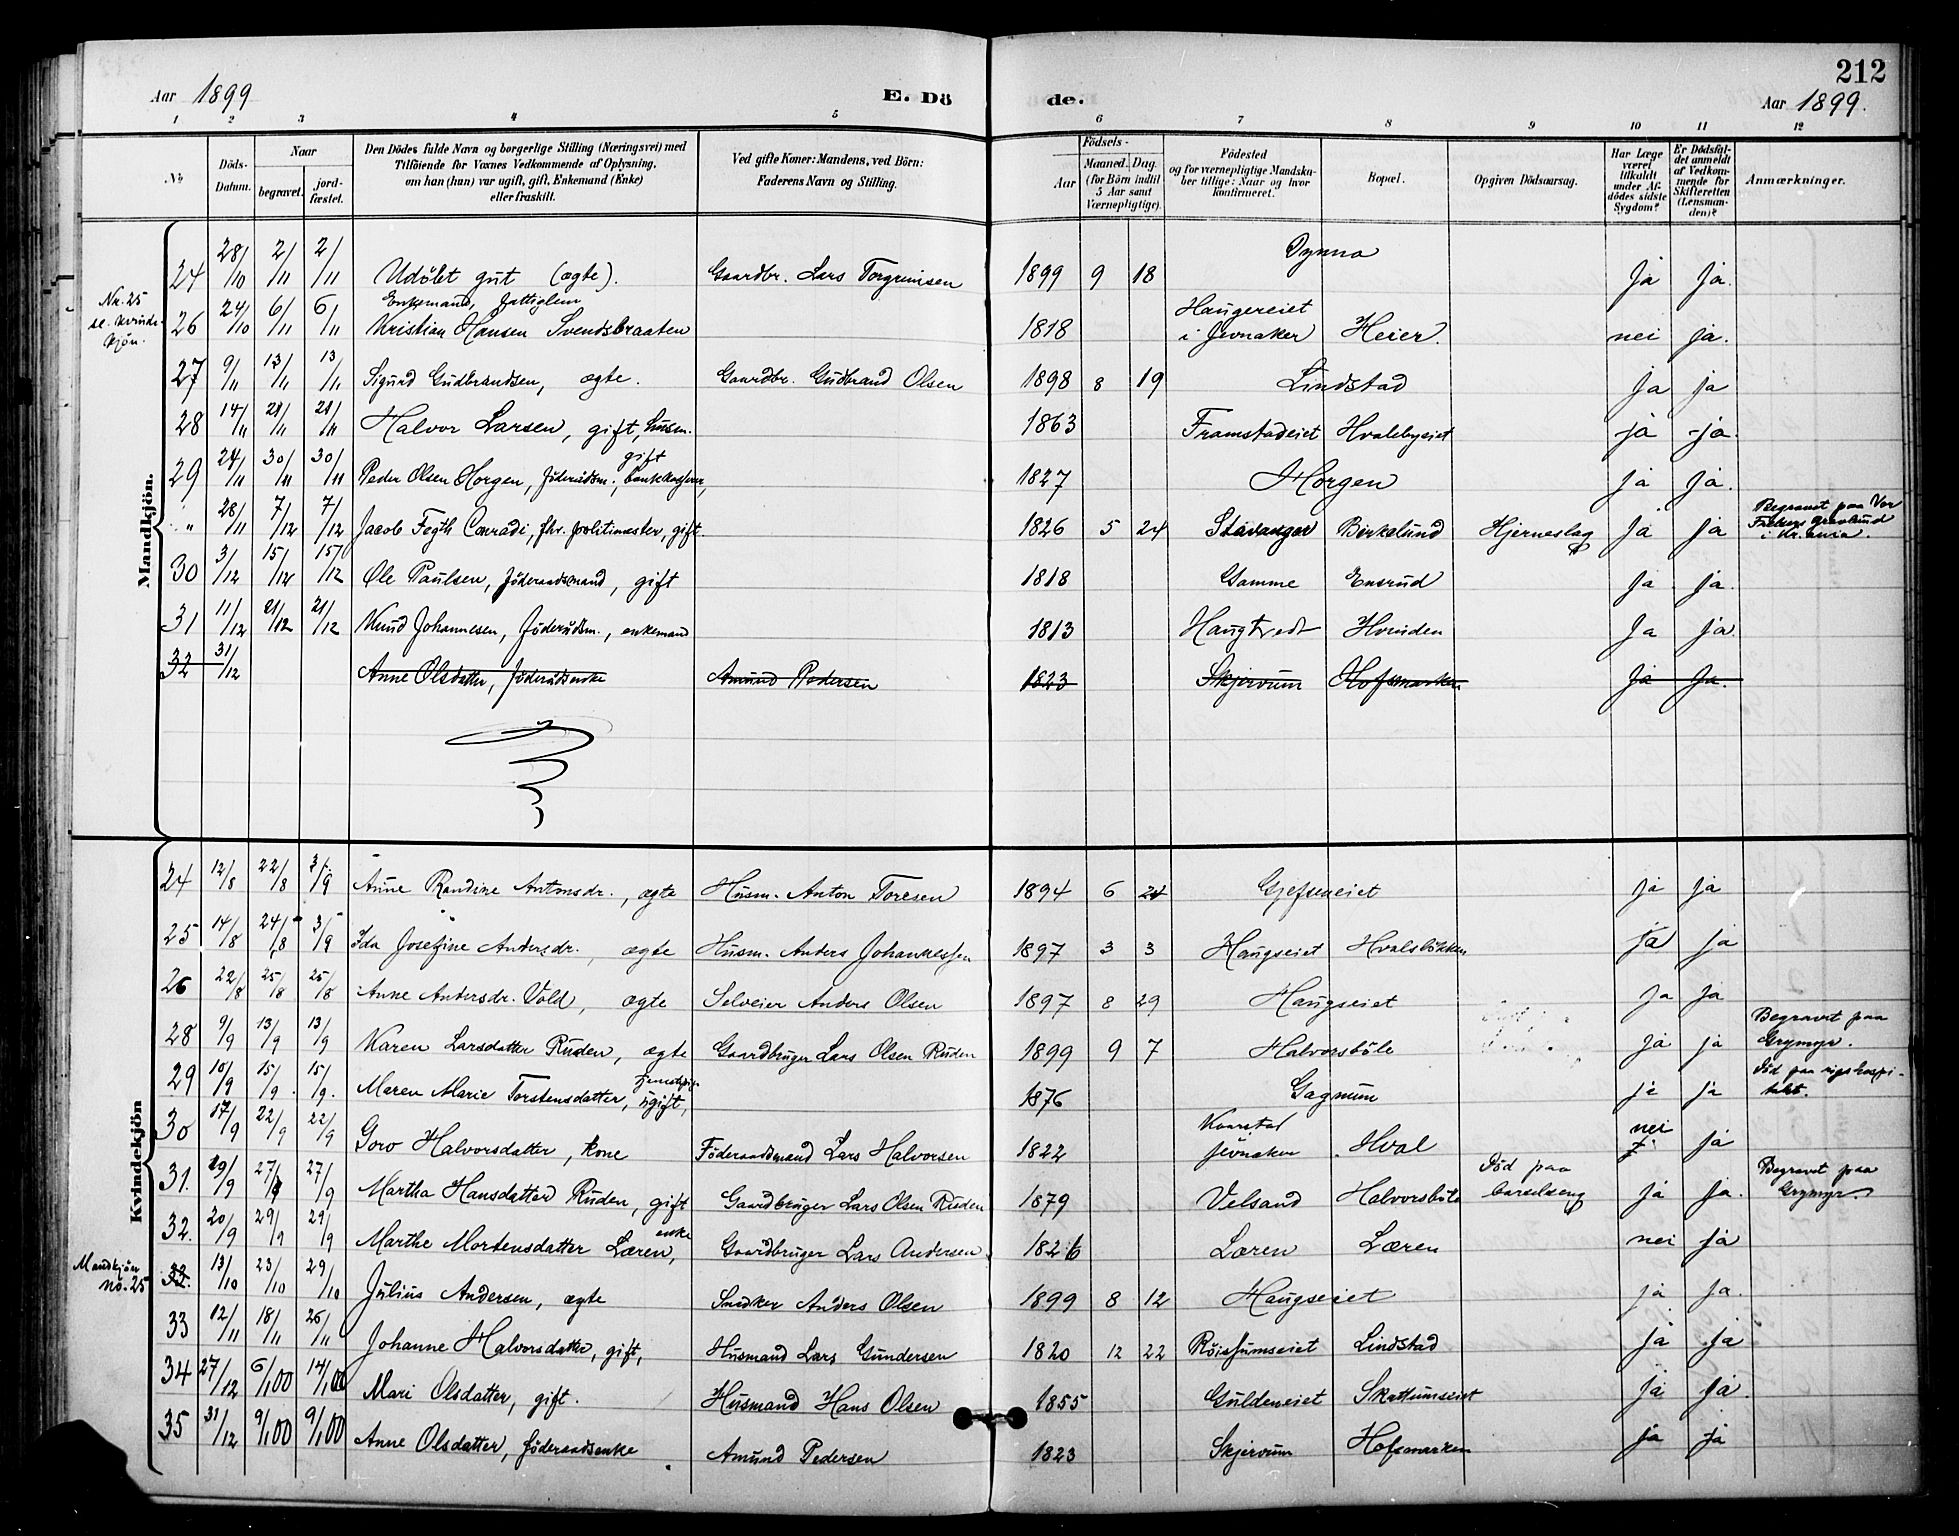 212
Aar 1899 E. Dö de. Aar 1899.
1 2 3 4 5 6 7 8 9 10 11 12
No
Döds-Datum.
Naar
begravet.
jord-fæstet.
Den Dödes fulde Navn og borgerlige Stilling (Næringsvei) med
Tilföiende for Voxnes Vedkommende af Oplysning,
om han (hun) var ugift, gift, Enkemand (Enke)
eller fraskilt.
Ved gifte Koner: Mandens, ved Börn:
Faderens Navn og Stilling.
Födsels-
Aar
Maaned. Dag.
(for Börn indtil
5 Aar samt
Værnepligtige).
Födested
og for værnepligtige Mandska-
ber tillige: Naar og hvor
konfirmeret.
Bopæl.
Opgiven Dödsaarsag.
Har Læge
været
tilkaldt
under Af-
dödes sidste
Sygdom?
Er Dödsfal-
det anmeldt
af Vedkom-
mende for
Skifteretten
(Lensman-
den)?
Anmærkninger.
Mandkjön.
24 28/10 2/11 2/11 Udöbt gut (ægte). Gaardbr. Lars Torgrimsen 1899 9 18 Dynna Ja Ja.
No. 25
se kvinde-
kjön.
26 24/10 6/11 6/11 Enkemand, fattiglem
Kristian Hansen Svendsbraaten 1818 Haugereiet
i Jevnaker Heier. nei ja.
27 9/11 13/11 13/11 Sigurd Gudbrandsen, ægte. Gaardbr. Gudbrand Olsen 1898 8 19 Lindstad Ja ja
28 14/11 21/11 21/11 Halvor Larsen, gift, husm. 1863 Framstadeiet Hvalebyeiet ja ja.
29 24/11 30/11 30/11 Peder Olsen Horgen, föderaadsm., bankkasserer, gift 1827 Horgen ja ja.
" 28/11 7/12 7/12 Jacob Fegth Conradi, fhv. politimester, gift. 1826 5 24 Stavanger Birkelund Hjerneslag Ja ja Begravet paa Vor
Frelsers Gravlund
i Kr.ania.
30 3/12 15/12 15/12 Ole Paulsen, föderaadsmand, gift 1818 Gamme Ensrud ja ja.
31 11/12 21/12 21/12 Knud Johannesen, föderaadsm., enkemand 1813 Haugtvedt Hvinden Ja ja.
32 31/12 Anne Olsdatter, föderaadsenke Amund Pedersen 1823 Skjervum Hofsmarken Ja Ja.
Kvindekjön
24 12/8 22/8 3/9 Anne Randine Antonsdr., ægte Husm. Anton Toresen 1894 6 24 Gjefseneiet ja ja
25 14/8 24/8 3/9 Ida Josefine Andersdr., ægte Husm. Anders Johannessen 1897 3 3 Haugseiet Hvalsbökken ja ja
26 22/8 25/8 25/8 Anne Andersdr. Vold, ægte Selveier Anders Olsen 1897 8 29 Haugseiet ja ja
28 9/9 13/9 13/9 Karen Larsdatter Ruden, ægte Gaardbruger Lars Olsen Ruden 1899 9 7 Halvorsböle ja ja Begravet paa
Grymyr.
29 10/9 15/9. 15/9. Maren Marie Torstensdatter, ugift, 1876 Gagnum ja ja Död paa rigshospi-
talet.
30 17/9 22/9 22/9 Goro Halvorsdatter, kone Föderaadmand Lars Halvorsen 1822 Kvarstad
Jevnaker Hval nei ja
31. 19/9 27/9 27/9 Martha Hansdatter Ruden, gift Gaardbruger Lars Olsen Ruden 1879 Velsand Halvorsböle Död paa
barselseng ja ja. Begravet paa
Grymyr.
32. 20/9 29/9 29/9 Marthe Mortensdatter Læren, enke Gaardbruger Lars Andersen. 1826 Læren Læren nei ja
Mandkjön
no. 25
33. 13/10 23/10 29/10 Julius Andersen, ægte Snedker Anders Olsen 1899 8 12 Haugseiet ja ja.
33 12/11 18/11 26/11 Johanne Halvorsdatter, gift, Husmand Lars Gundersen 1820 12 22 Röissumseiet Lindstad ja ja
34 27/12 6/1 00 14/1 00 Mari Olsdatter, gift. Husmand Hans Olsen 1855 Guldeneiet Skattumseiet ja ja.
35 31/12 9/1 00 9/1 00 Anne Olsdatter, föderaadsenke Amund Pedersen 1823 Skjervum Hofsmarken ja ja